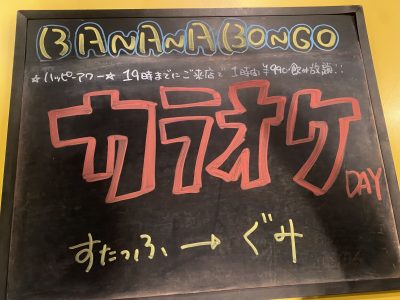 BANANA BONGO
☆ハッピーアワー☆ 19時までにご来店で 1時間 ¥990 飲み放題!!
カラオケ DAY
すたっふ → ぐみ